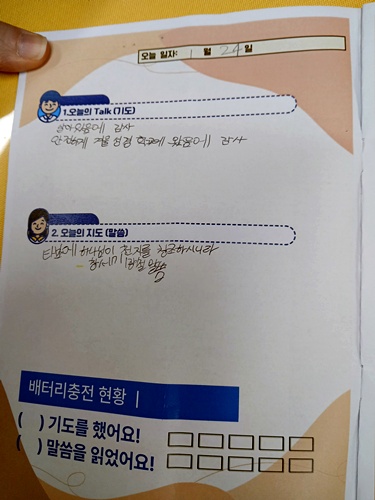 오늘 일자: | 월 24일
1.오늘의 Talk (기도)
살아있음에 감사
안전하게 겨울 성경 학교에 왔음에 감사
2. 오늘의 지도 (말씀)
태초에 하나님이 천지를 창조하시니라
창세기 1장 1절 말씀
배터리충전 현황 |
( ) 기도를 했어요!
( ) 말씀을 읽었어요!